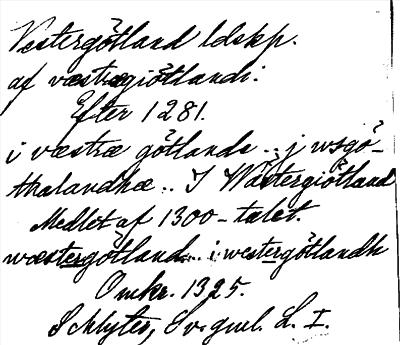 Vestergötland ldskp.
af væstrægiötlandi:
Efter 1281.
i væstræ götlande .. j wsgö-
thalandhæ .. I Wästergiötland
Medlet af 1300-talet.
wæstergötland... i westergötlandh
Omkr. 1325.
Schlyter, Sv. gml. L. I.